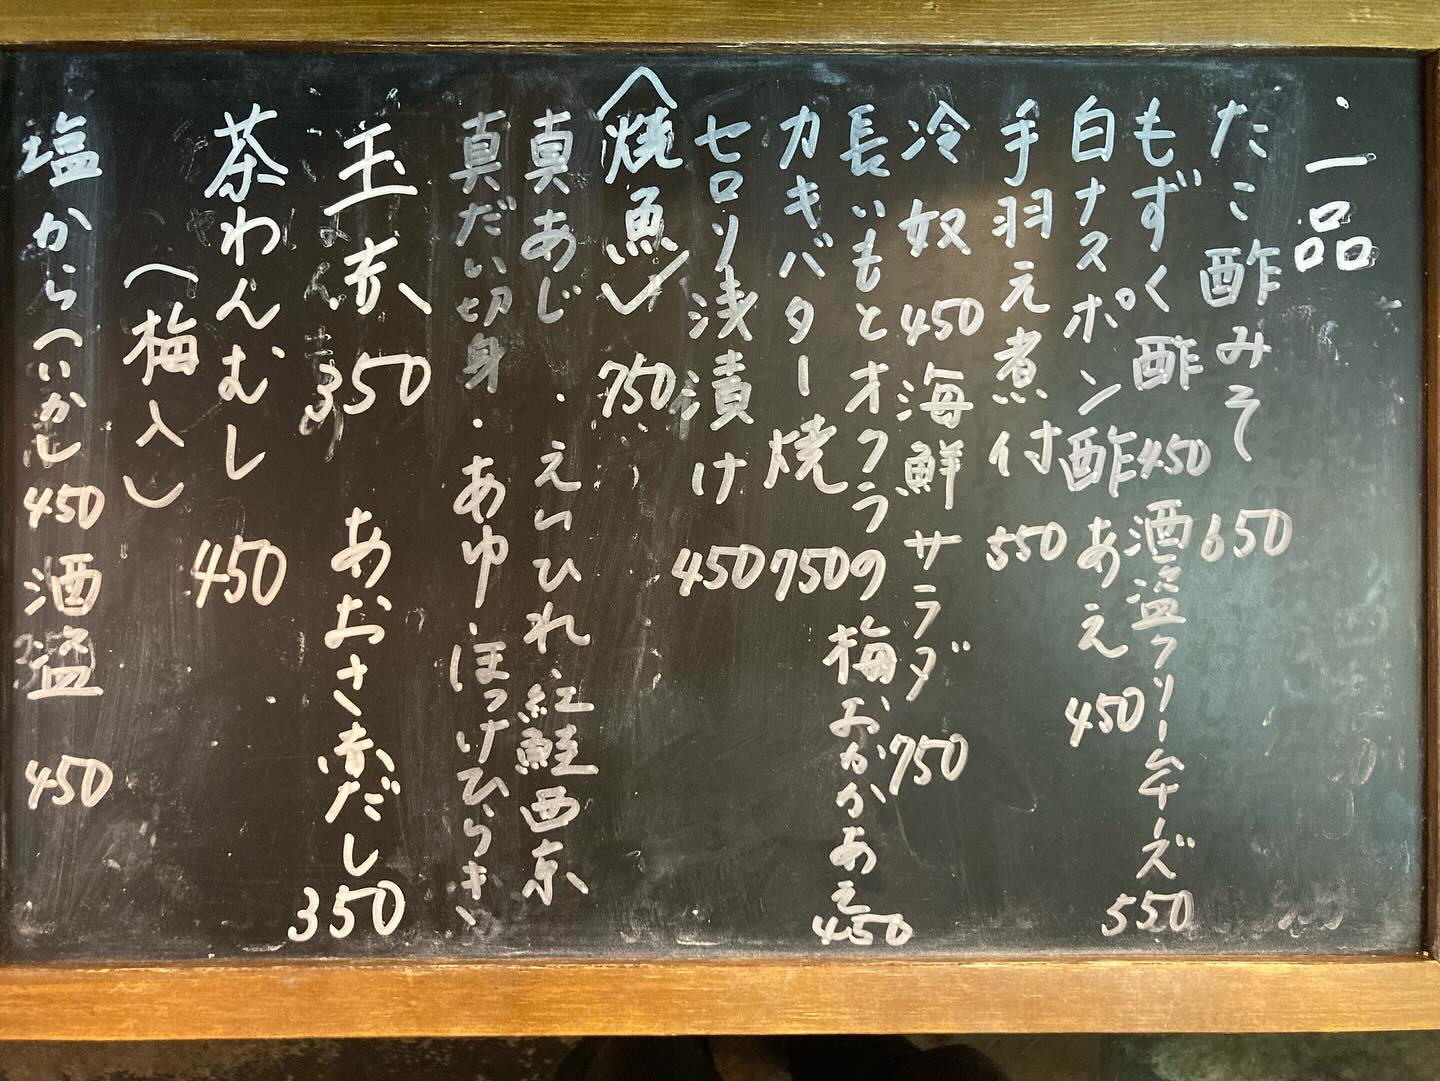 ・一品
たこ酢みそ 650
もずく酢 450 酒盗クリームチーズ 550
白ナスポン酢あえ 450
手羽元煮付 550
冷奴 450 海鮮サラダ 750
長いもとオクラの梅おかかあえ 450
カキバター焼 750
セロリ浅漬け 450
〈焼魚〉 750
真あじ・えいひれ・紅鮭西京
真だい切身・あゆ・ほっけひらき
玉赤 350 あおさ赤だし 350
茶わんむし 450
(梅入り)
塩から(いかし 450 酒盗 450